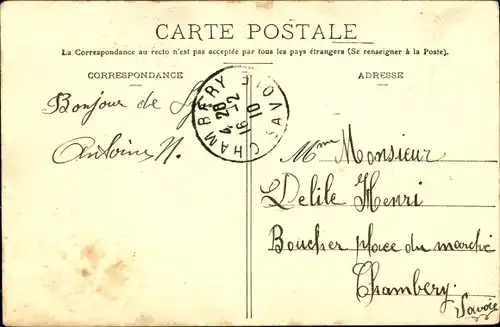 CARTE POSTALE
La Correspondance au recto n'est pas acceptée par tous les pays étrangers (Se renseigner à la Poste).
CORRESPONDANCE
ADRESSE
Bonjour de
Antoine N.
CHAMBERY SAVOIE
4 20
16 -12
10
Mme Monsieur
Delile Henri
Boucher place du marché
Chambery.
Savoie